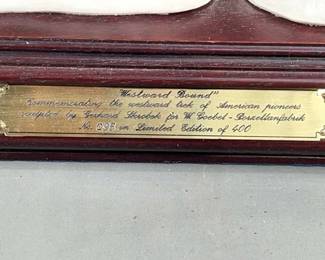 "Westward Bound"
Commemorating the westward trek of American pioneers
sculpted by Gerhard Skrobek for W. Goebel - Porzellanfabrik
No. in Limited Edition of 400